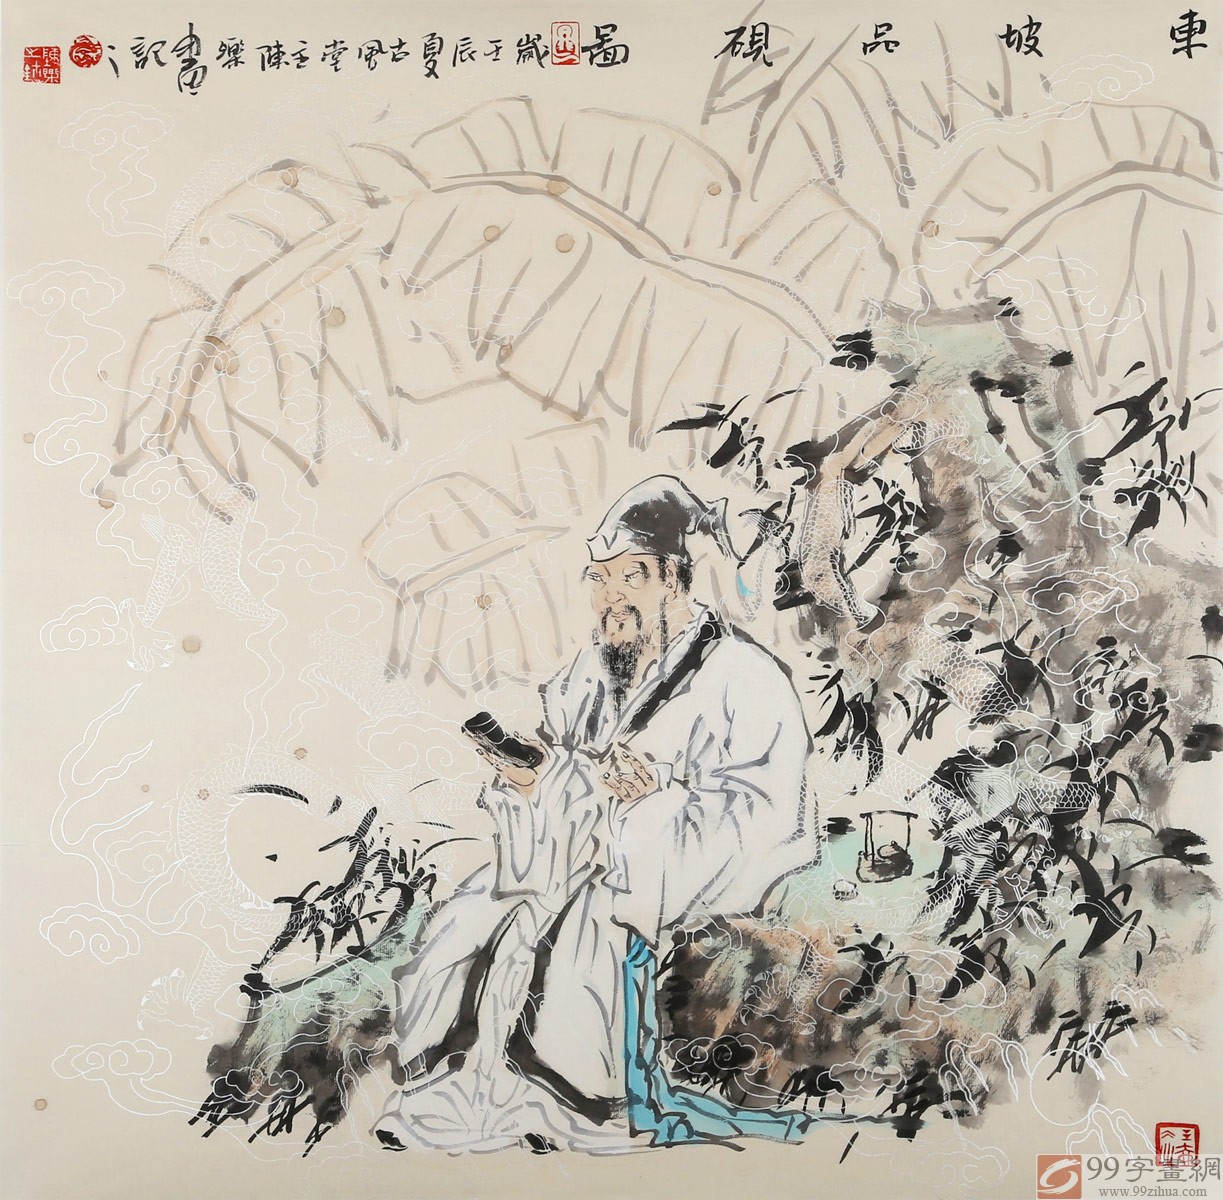 東坡品硯圖 歲壬辰夏古風堂主陳樂畫記
99字畫網
www.99zihua.com